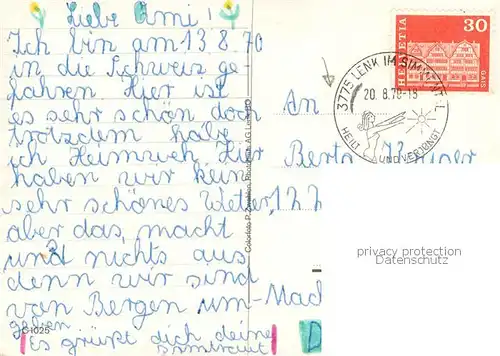 Liebe Omi!
Ich bin am 13.8.70
in die Schweiz ge-
fahren Hier ist
es sehr schön doch
trotzdem habe
ich Heimweh. Hier
haben wir kein
sehr schönes Wetter,
aber das macht
uns nichts aus
denn wir sind
von Bergen um-
geben
Es grüßt dich deine
C-1025
Colorfoto P.
HELVETIA
30
GAIS
3775 LENK IM SIMMENTAL
20.8.70-18
HEILT UND VERJÜNGT
An
Berta
privacy protection
Datenschutz